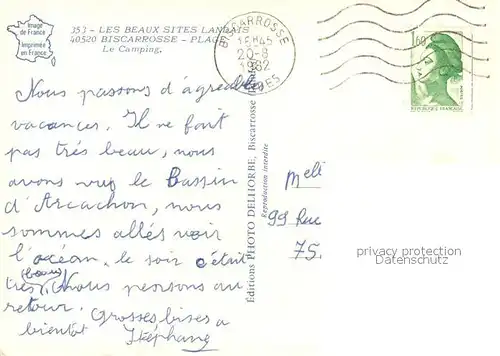 Image
de France
Imprimée
en France
353 - LES BEAUX SITES LANDAIS
40520 BISCARROSSE - PLAGE
Le Camping.
BISCARROSSE
15H45
20-8
1982
LANDES
1,60
REPUBLIQUE FRANÇAISE
Nous passons d'agréables
vacances. Il ne fait
pas très beau, nous
avons vu le Bassin
d'Arcachon, nous
sommes allés voir
l'océan, le soir c'était
très (beau) Nous pensons au
retour. Grosses bises a
bientôt Stéphane
Éditions PHOTO DELHORBE, Biscarrosse
Reproduction interdite
Meli
99 Rue
75.
privacy protection
Datenschutz